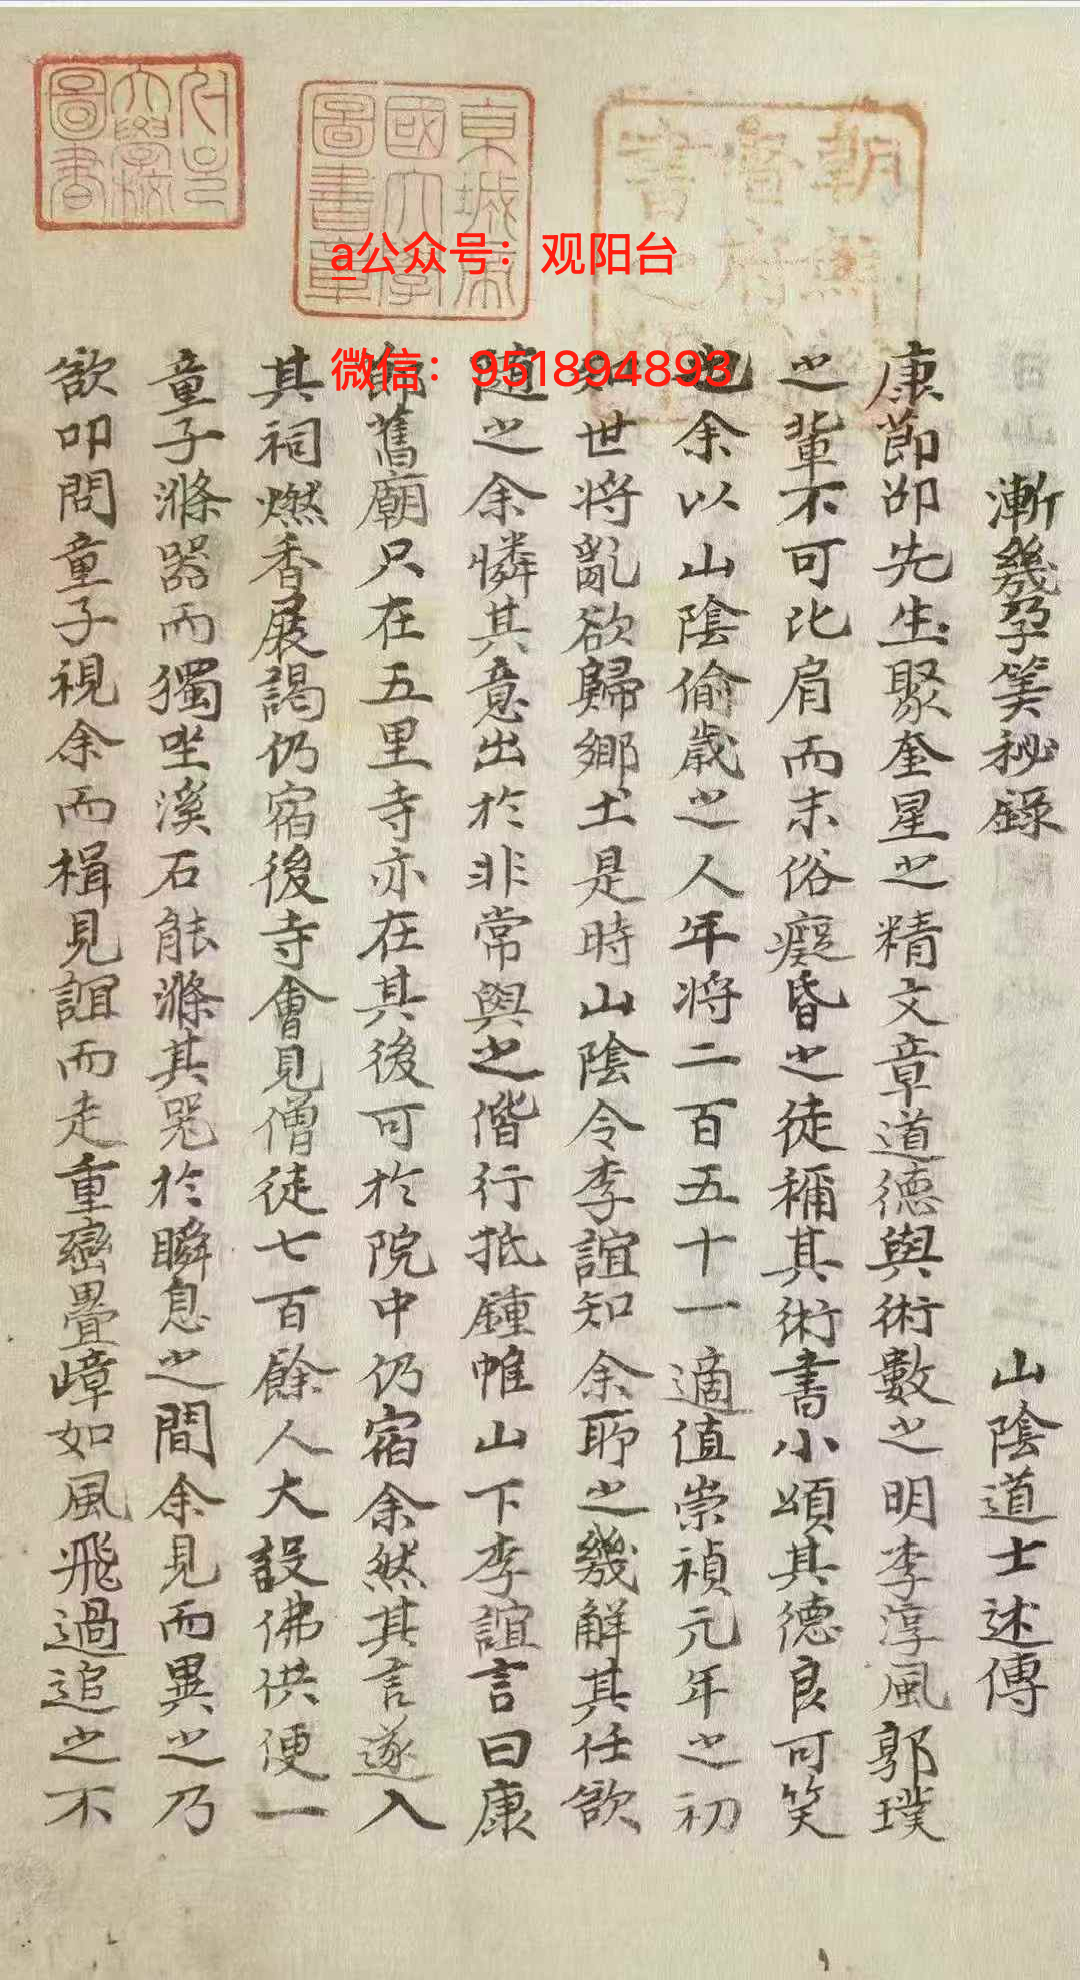 漸幾孕筭秘錄 山陰道士述傳
康節卲先生聚奎星之精文章道德與術數之明李淳風郭璞
之輩不可比肩而末俗癡昏之徒稱其術書小頌其德良可笑
也余以山陰偷歲之人年將二百五十一適值崇禎元年之初
知世將亂欲歸鄉土是時山陰令李誼知余聊之幾解其任欲
隨之余憐其意出於非常與之偕行抵鍾帷山下李誼言曰康
節舊廟只在五里寺亦在其後可於院中仍宿余然其言遂入
其祠燃香展謁仍宿後寺會見僧徒七百餘人大設佛供便一
童子滌器而獨坐溪石能滌其器於瞬息之間余見而異之乃
欲叩問童子視余而楫見誼而走重巒疊嶂如風飛過追之不
京城帝國大學圖書章
大學校圖書
朝鮮
書
a公众号：观阳台
微信：951894893